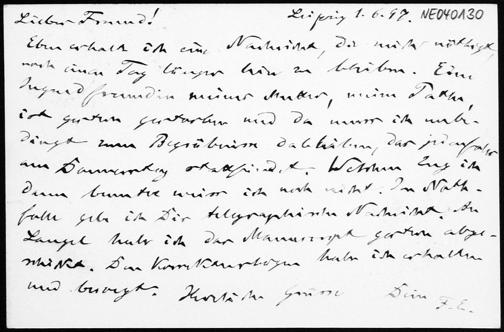 Lieber Freund! Leipzig 1.6.97. NE040A30
Eben erhalte ich eine Nachricht, die mich nöthigt,
noch einen Tag länger hier zu bleiben. Eine
Jugendfreundin meiner Mutter, meine Pathe,
ist gestern gestorben und da muss ich unbe-
dingt zum Begräbnisse dableiben, das jedenfalls
am Donnerstag stattfindet. Welchen Zug ich
dann benutze weiss ich noch nicht. Im Noth-
falle gebe ich Dir telegraphische Nachricht. An
Langel habe ich das Manuscript gestern abge-
schickt. Die Korrekturbögen habe ich erhalten
und besorgt. Herzliche Grüsse Dein